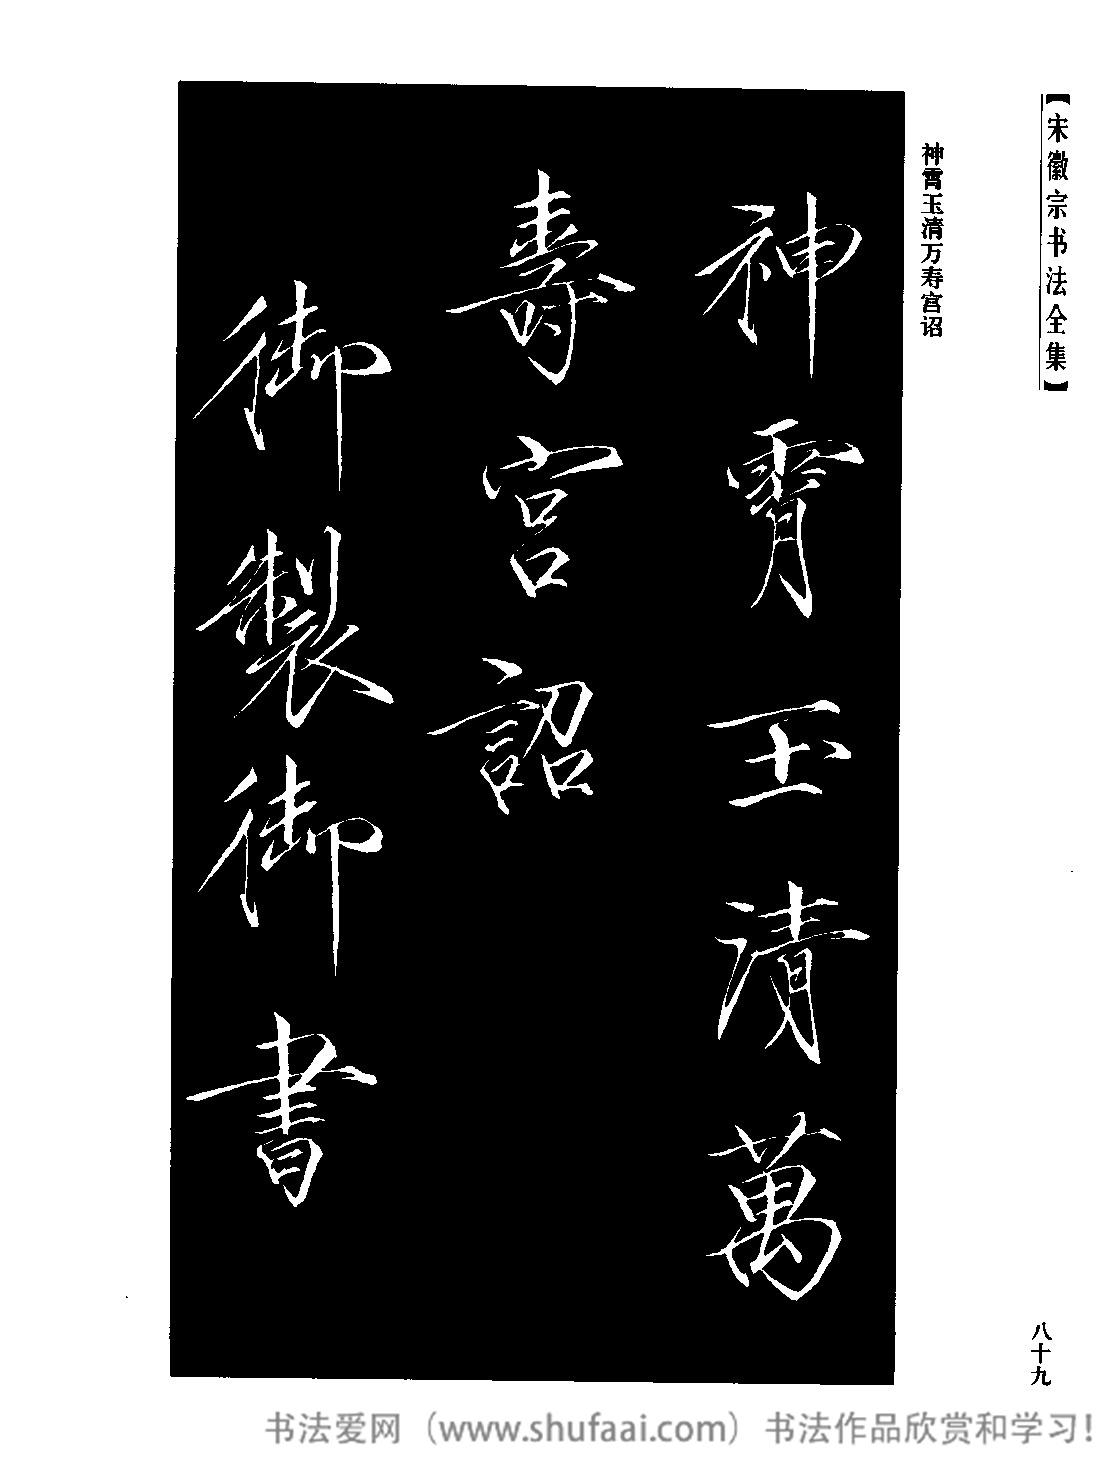 【宋徽宗书法全集】
神霄玉清万寿宫诏
神霄玉清萬
壽宮詔
御製御書
八十九
书法爱网（www.shufaai.com）书法作品欣赏和学习！